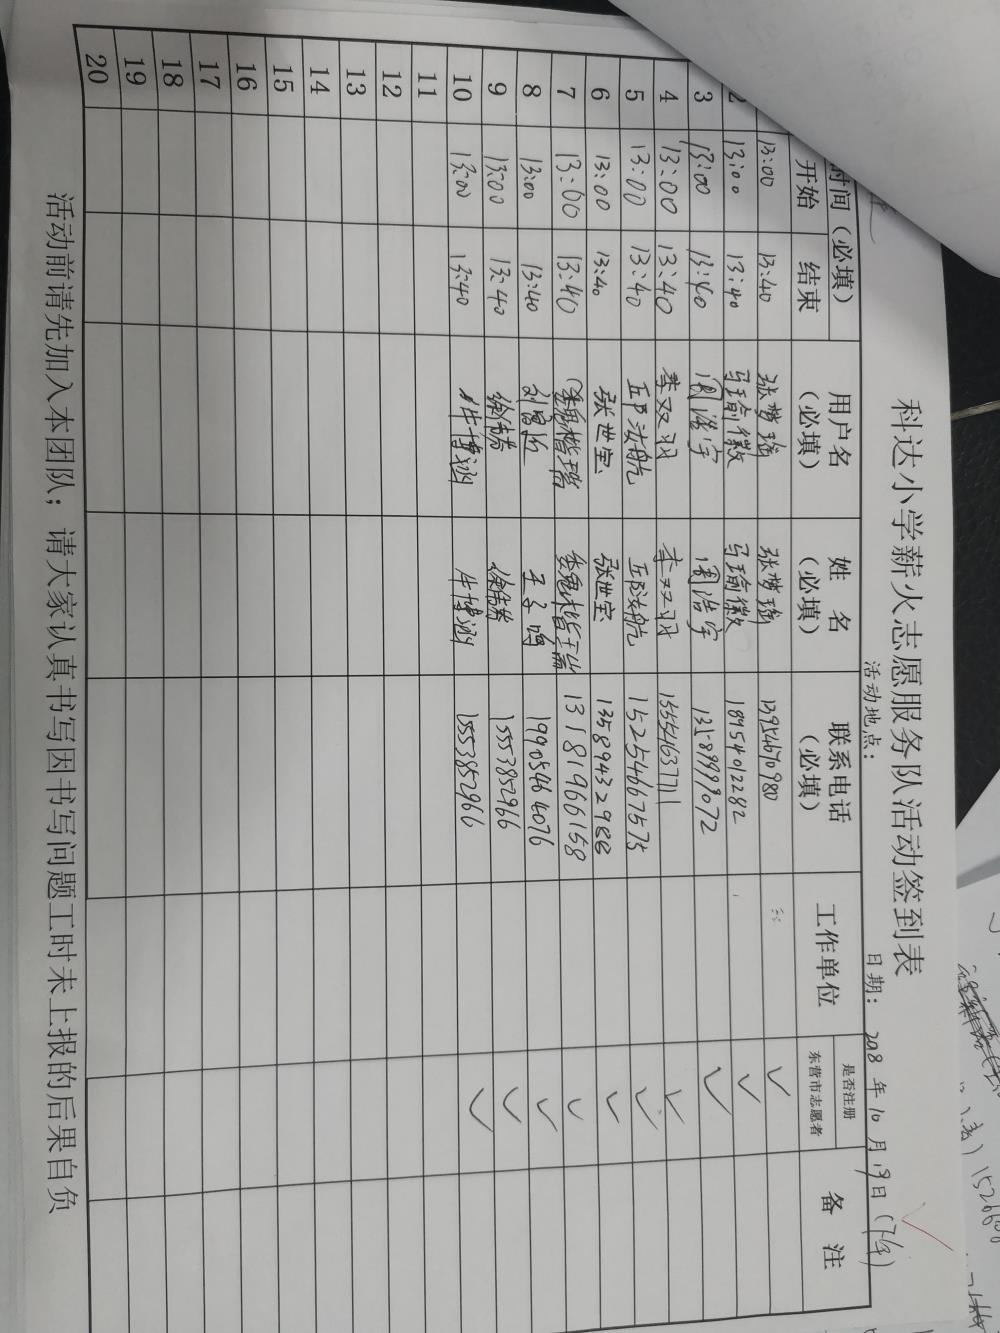 科达小学薪火志愿服务队活动签到表
活动地点： 日期：2018年10月19日(下午)
时间（必填） 用户名（必填） 姓 名（必填） 联系电话（必填） 工作单位 是否注册东营市志愿者 备 注
开始 结束
13:00 13:40 张梦瑶 张梦瑶 13954670980 ✓
2 13:00 13:40 马瑜徽 马瑜徽 18954012282 ✓
3 13:00 13:40 周浩宇 周浩宇 ✓
4 13:00 13:40 李双羽 李双羽 15554637711 ✓
5 13:00 13:40 邱汝航 邱汝航 15254667575 ✓
6 13:00 13:40 张世宝 张世宝 13589432988 ✓
7 13:00 13:40 13181966158 ✓
8 13:00 13:40 王子鸣 19905464076 ✓
9 13:00 13:40 15553852966 ✓
10 13:00 13:40 牛博涵 牛博涵 15553852966 ✓
11
12
13
14
15
16
17
18
19
20
活动前请先加入本团队；请大家认真书写因书写问题工时未上报的后果自负